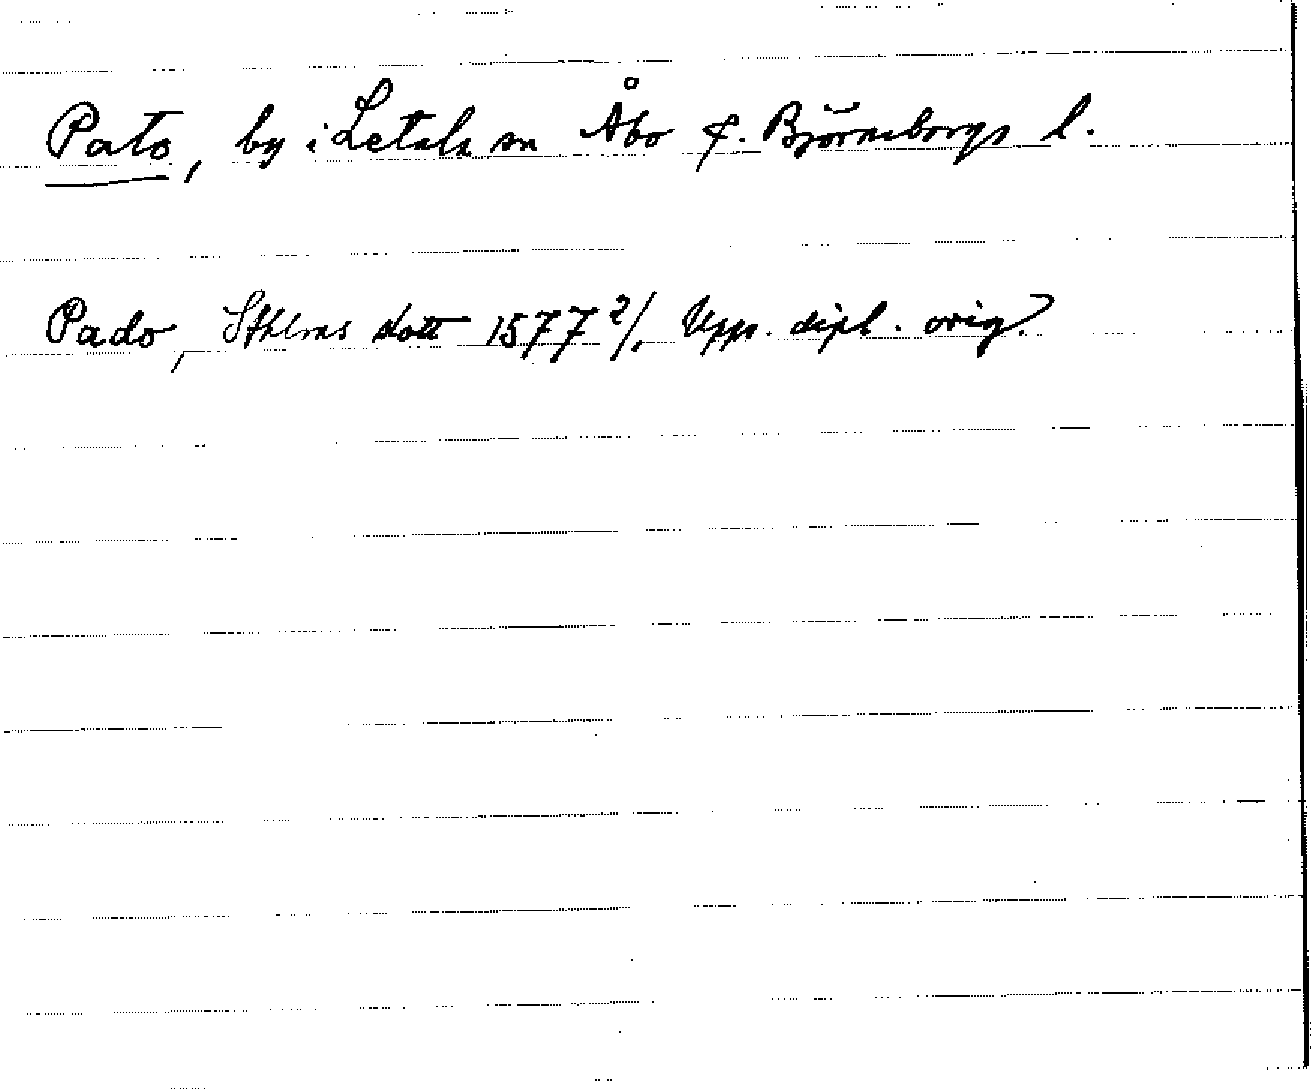 Pato, by i Letala sn Åbo o. Björneborgs l.
Pado, Sthlms slott 1577 2/1, Upps. dipl. orig.